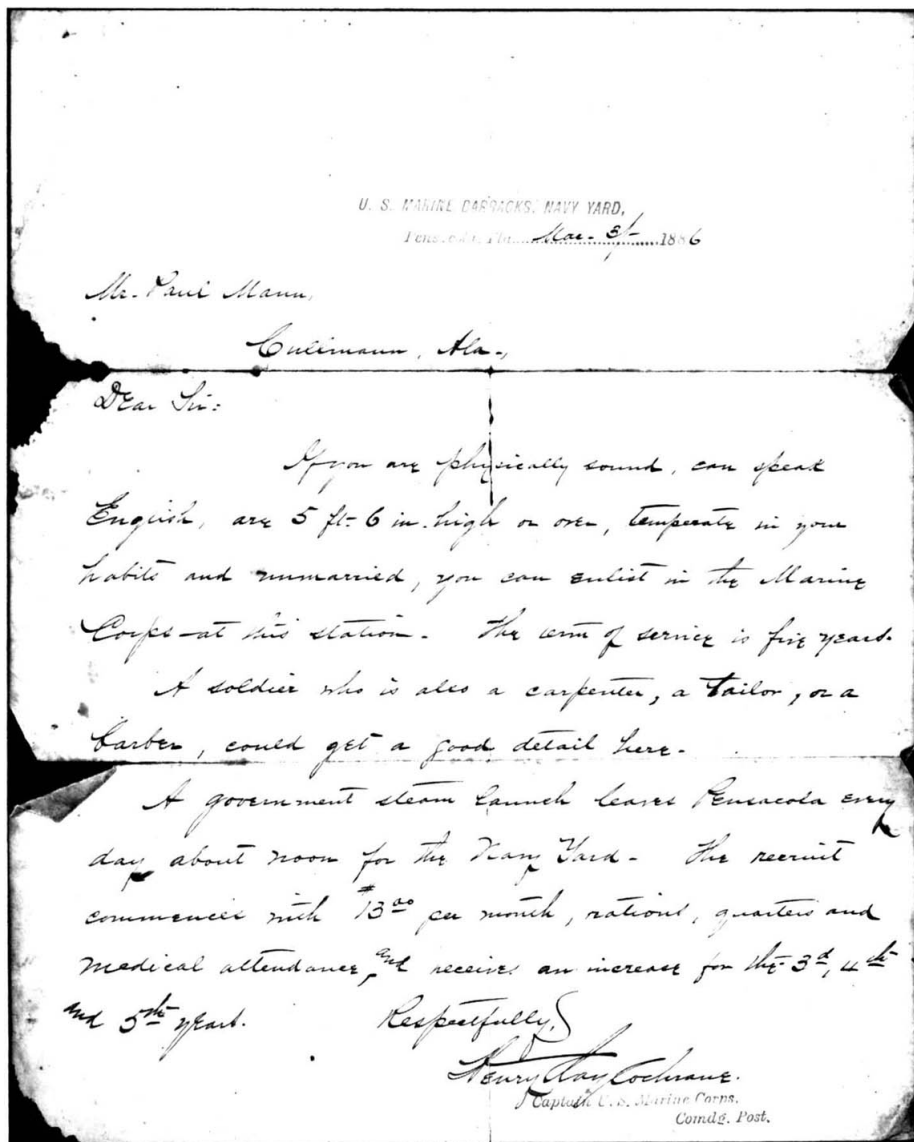 U. S. MARINE BARRACKS, NAVY YARD,
Pensacola, Fla. Mar. 3/ 1886
Mr. Paul Mann,
Cullmann, Ala.,
Dear Sir:
If you are physically sound, can speak
English, are 5 ft-6 in. high or over, temperate in your
habits and unmarried, you can enlist in the Marine
Corps at this station. The term of service is five years.
A soldier who is also a carpenter, a tailor, or a
barber, could get a good detail here.
A government steam launch leaves Pensacola every
day about noon for the Navy Yard. The recruit
commences with $13.00 per month, rations, quarters and
medical attendance, and receives an increase for the 3d, 4th
and 5th years.
Respectfully,
Henry Clay Cochrane.
Captain U. S. Marine Corps.
Comdg. Post.